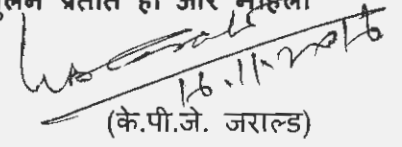 प्रतीत हो और महिला
16.11.2016
(के.पी.जे. जराल्ड)